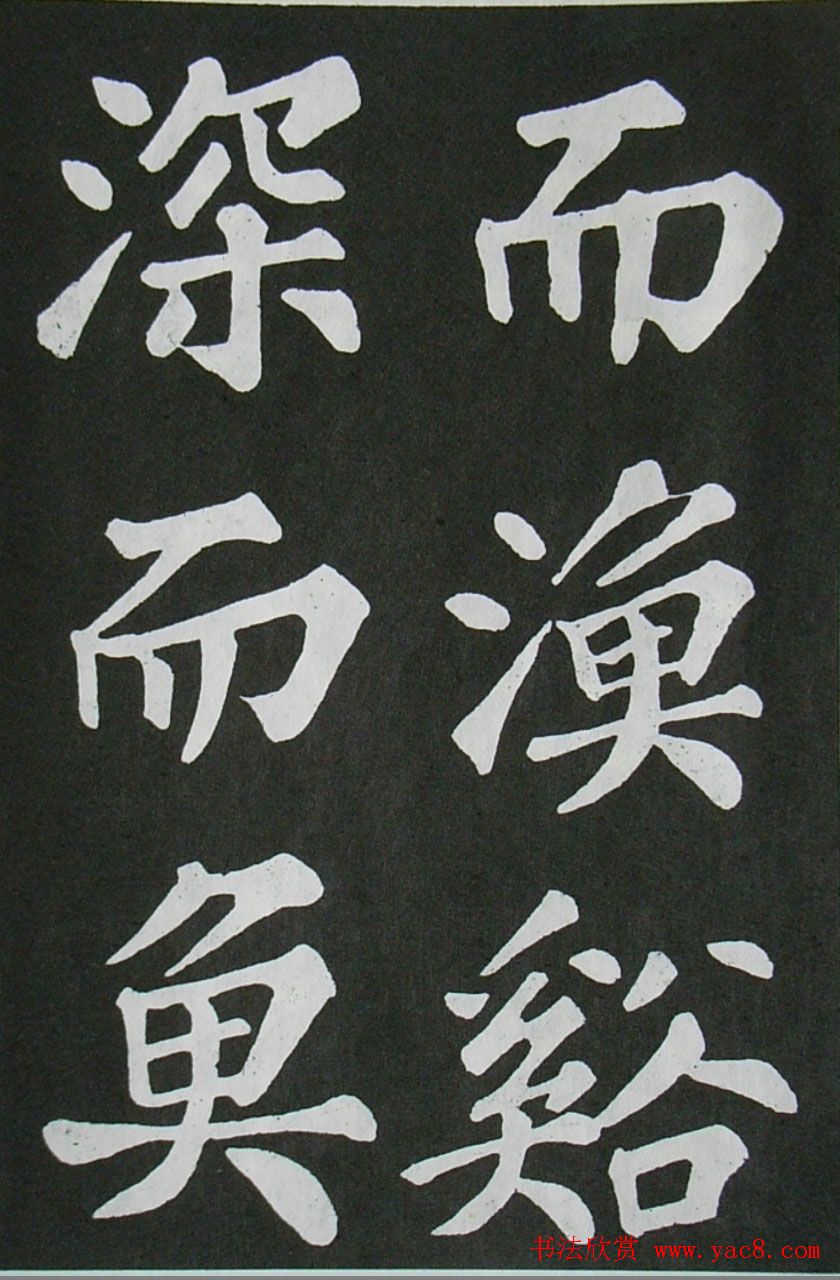 而渔谿
深而魚
书法欣赏 www.yac8.com